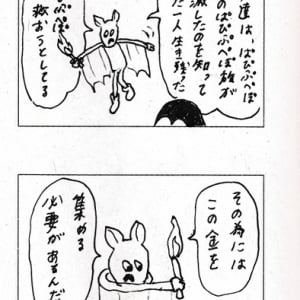 達は、ぱぴぷぺぽ
のぱぴぷぺぽ族が
滅したのを知って
た一人生き残った
救おうとしてる
その為には
この金を
集める
必要があるんだ